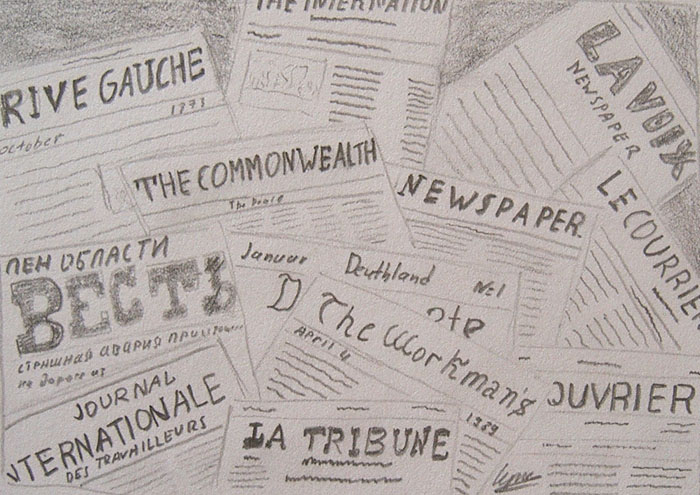 THE INTERNATION
RIVE GAUCHE
1873
October
LA VOIX
NEWSPAPER
THE COMMONWEALTH
The Peace
NEWSPAPER.
LE COURRIER
ПЕН ОБЛАСТИ
ВЕСТЬ
СТРАШНАЯ АВАРИЯ
на дороге из
Januar Deuthland №1
D ote
The Workman's
APRIL 4
1989
JOURNAL
NTERNATIONALE
DES TRAVAILLEURS
LA TRIBUNE
OUVRIER